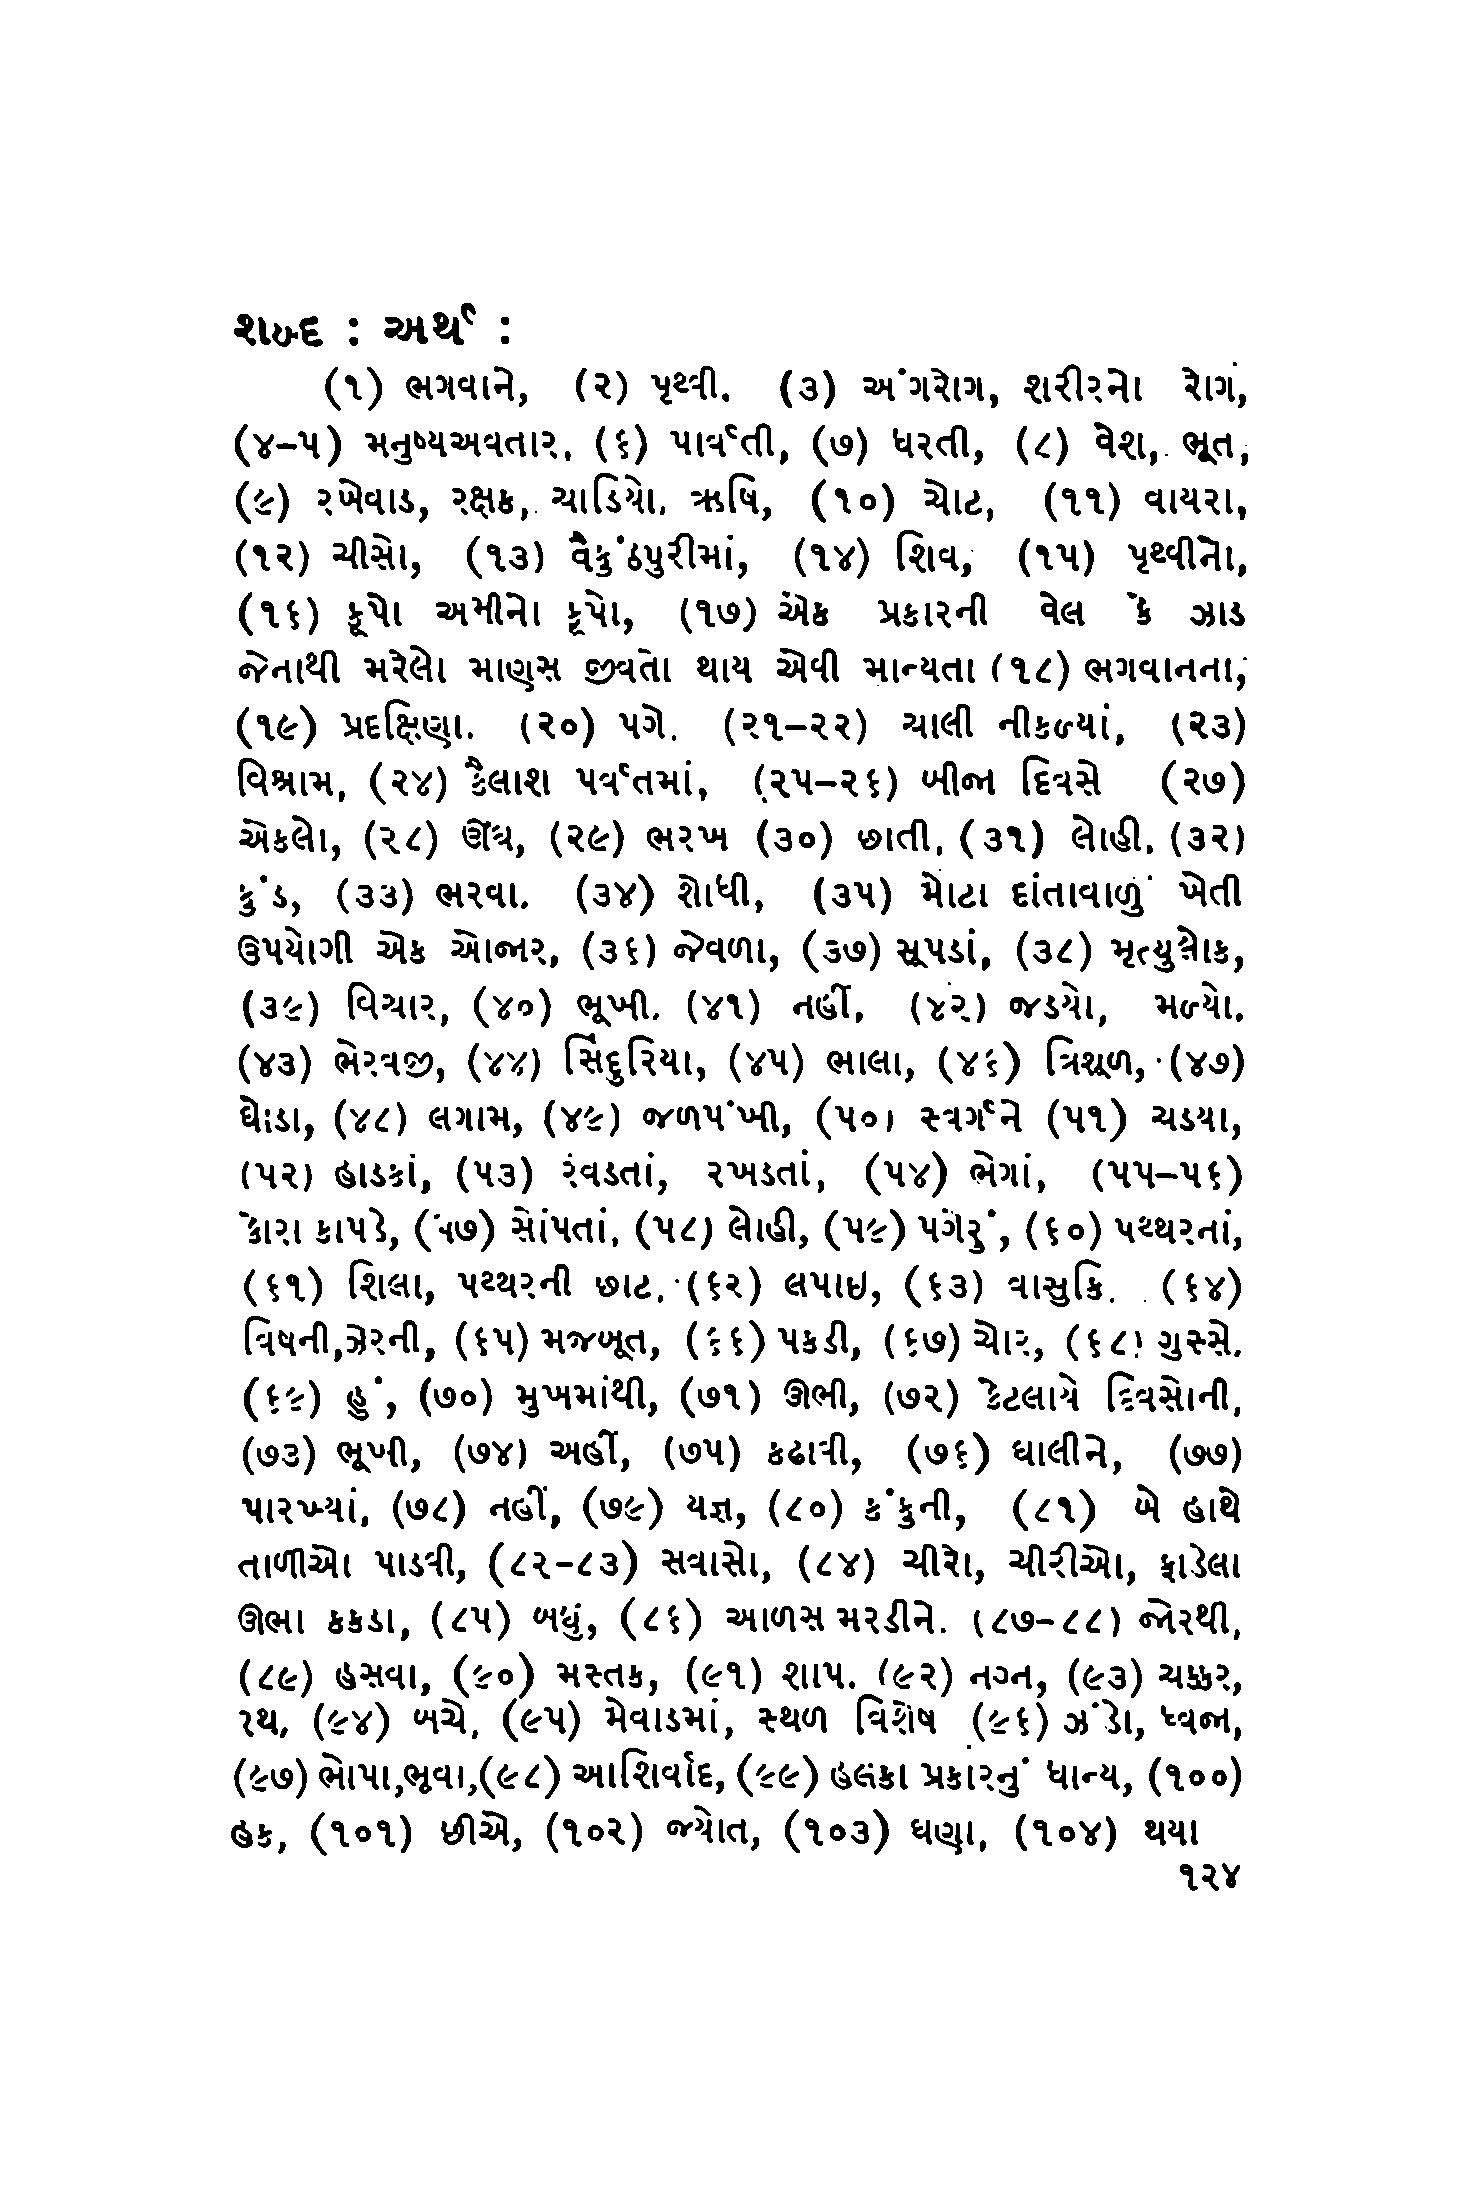 શબ્દ : અર્થ :
(૧) ભગવાને, (૨) પૃથ્વી. (૩) અંગરોગ, શરીરનો રોગ,
(૪–૫) મનુષ્યઅવતાર. (૬) પાર્વતી, (૭) ધરતી, (૮) વેશ, ભૂત,
(૯) રખેવાડ, રક્ષક, ચાડિયો. ઋષિ, (૧૦) ચોટ, (૧૧) વાયરા,
(૧૨) ચીસો, (૧૩) વૈકુંઠપુરીમાં, (૧૪) શિવ, (૧૫) પૃથ્વીનો,
(૧૬) કૂપો અમીનો કૂપો, (૧૭) એક પ્રકારની વેલ કે ઝાડ
જેનાથી મરેલો માણસ જીવતો થાય એવી માન્યતા (૧૮) ભગવાનના,
(૧૯) પ્રદક્ષિણા. (૨૦) પગે. (૨૧–૨૨) ચાલી નીકળ્યાં, (૨૩)
વિશ્રામ, (૨૪) કૈલાશ પર્વતમાં, (૨૫–૨૬) બીજા દિવસે (૨૭)
એકલો, (૨૮) ઊંઘ, (૨૯) ભરખ (૩૦) છાતી, (૩૧) લોહી. (૩૨)
કુંડ, (૩૩) ભરવા. (૩૪) શોધી, (૩૫) મોટા દાંતાવાળું ખેતી
ઉપયોગી એક ઓજાર, (૩૬) જેવળા, (૩૭) સૂપડાં, (૩૮) મૃત્યુશોક,
(૩૯) વિચાર, (૪૦) ભૂખી. (૪૧) નહીં, (૪૨) જડયો, મળ્યો.
(૪૩) ભેરવજી, (૪૪) સિંદુરિયા, (૪૫) ભાલા, (૪૬) ત્રિશૂળ, (૪૭)
ઘોડા, (૪૮) લગામ, (૪૯) જળપંખી, (૫૦) સ્વર્ગને (૫૧) ચડયા,
(૫૨) હાડકાં, (૫૩) રવડતાં, રખડતાં, (૫૪) ભેગાં, (૫૫–૫૬)
કોરા કાપડે, (૫૭) સોંપતાં, (૫૮) લોહી, (૫૯) પગેરું, (૬૦) પથ્થરનાં,
(૬૧) શિલા, પથ્થરની છાટ, (૬૨) લપાઇ, (૬૩) વાસુકિ. (૬૪)
વિષની,ઝેરની, (૬૫) મજબૂત, (૬૬) પકડી, (૬૭) ચોર, (૬૮) ગુસ્સે.
(૬૯) હું, (૭૦) મુખમાંથી, (૭૧) ઊભી, (૭૨) કેટલાયે દિવસોની,
(૭૩) ભૂખી, (૭૪) અહીં, (૭૫) કઢાવી, (૭૬) ઘાલીને, (૭૭)
પારખ્યાં, (૭૮) નહીં, (૭૯) યજ્ઞ, (૮૦) કંકુની, (૮૧) બે હાથે
તાળીઓ પાડવી, (૮૨–૮૩) સવાસો, (૮૪) ચીરો, ચીરીઓ, ફાડેલા
ઊભા કકડા, (૮૫) બધું, (૮૬) આળસ મરડીને. (૮૭–૮૮) જોરથી,
(૮૯) હસવા, (૯૦) મસ્તક, (૯૧) શાપ. (૯૨) નગ્ન, (૯૩) ચક્કર,
રથ, (૯૪) બચે, (૯૫) મેવાડમાં, સ્થળ વિશેષ (૯૬) ઝંડો, ધ્વજા,
(૯૭) ભોપા,ભૂવા,(૯૮) આશિર્વાદ, (૯૯) હલકા પ્રકારનું ધાન્ય, (૧૦૦)
હક, (૧૦૧) છીએ, (૧૦૨) જ્યોત, (૧૦૩) ઘણા, (૧૦૪) થયા
૧૨૪